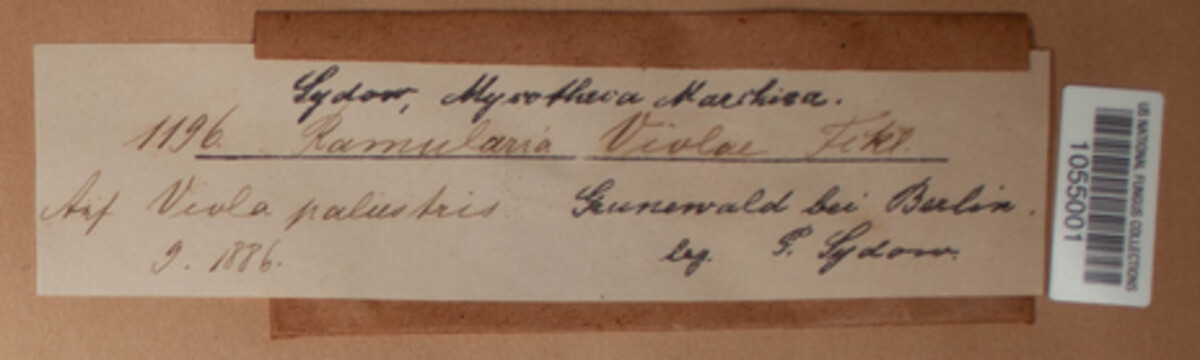 Sydow, Mycotheca Marchica.
1196. Ramularia Violae Fckl.
Auf Viola palustris. Grunewald bei Berlin.
9. 1886. leg. P. Sydow.
US NATIONAL FUNGUS COLLECTIONS
1055001